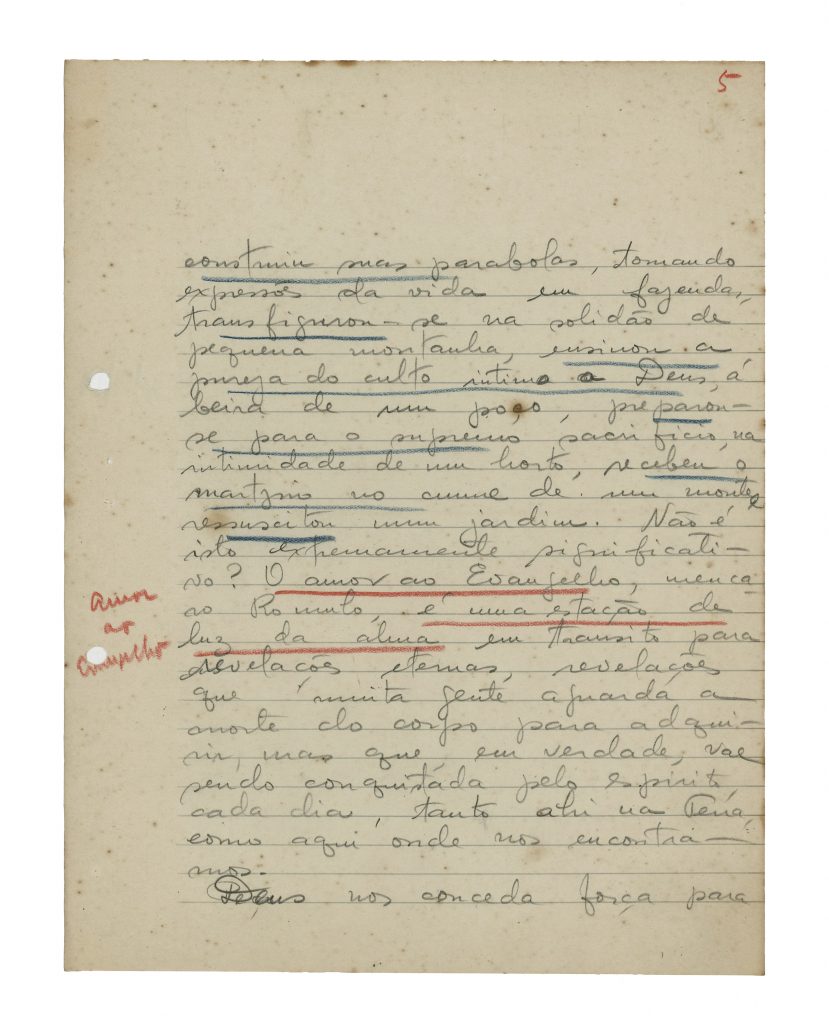 5
construiu suas parabolas, tomando
expressões da vida em fazendas,
transfigurou-se na solidão de
pequena montanha, ensinou a
pureza do culto intimo a Deus, á
beira de um poço, preparou-
se para o supremo sacrificio, na
intimidade de um horto, recebeu o
martyrio no cume de um monte e
ressuscitou num jardim. Não é
isto extremamente significati-
vo? O amor ao Evangelho,
ao Romulo, é uma estação de
luz da alma em transito para
revelações eternas, revelações
que muita gente aguarda a
morte do corpo para adqui-
rir, mas que, em verdade, vae
sendo conquistada pelo espirito,
cada dia, tanto ahi na Terra,
como aqui onde nos encontra-
mos.
Deus nos conceda força para
Amor
ao
Evangelho